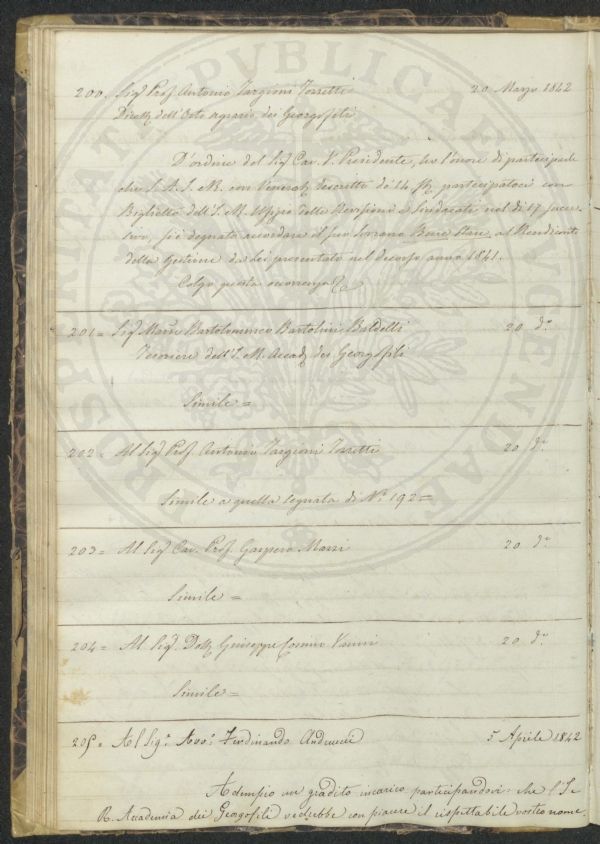 200. Sigr Prof. Antonio Targioni Tozzetti 20 Marzo 1842
Dirett. dell'Orto agrario dei Georgofili
D'ordine del Sigr Cav. V. Presidente, ho l'onore di parteciparle
che S. A. I. R. con Venerato Rescritto de' 14 partecipatoci con
Biglietto dell'I. R. Ufizio delle Revisioni e Sindacati nel dì 17 succes-
sivo, si è degnata accordare il suo Sovrano Bene Stare, al Rendiconto
della Gestione da Lei presentato nel decorso anno 1841.
Colgo questa occorrenza
201= Sigr March. Bartolommeo Bartolini Baldelli 20 do
Tesoriere dell'I. R. Accad. dei Georgofili
Simile=
202= Al Sigr Prof. Antonio Targioni Tozzetti 20 do
Simile a quella segnata di No 192=
203= Al Sigr Cav. Prof. Gaspero Mazzi 20 do
Simile=
204= Al Sigr Dott. Giuseppe Cosimo Vanni 20 do
Simile=
205= Al Sigr Avvo Ferdinando Andreucci 5 Aprile 1842
Adempio un gradito incarico participandovi: che l'I. e
R. Accademia dei Georgofili vedrebbe con piacere il rispettabile vostro nome
PROSPERITATI PUBLICAE AUGENDAE